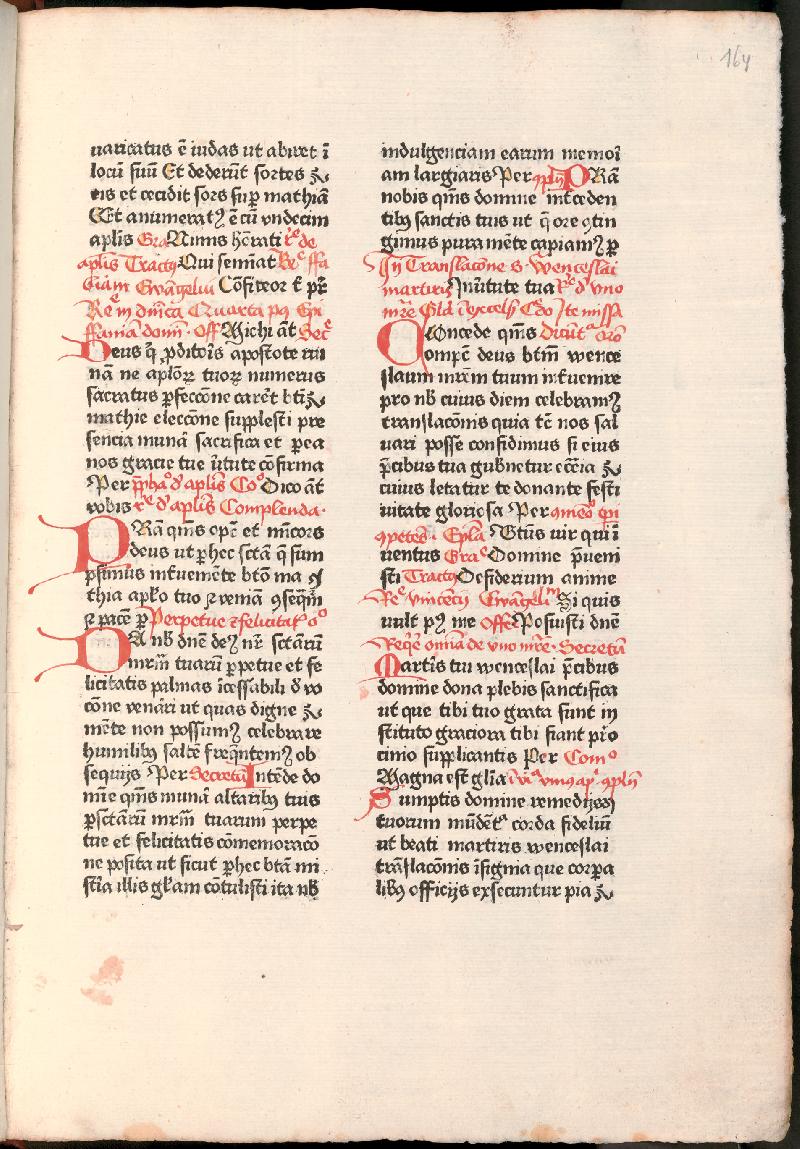 164
uaricatus ē iudas ut abiret ī
locū suū Et dederūt sortes ⁊
eis et cecidit sors sup̄ mathiā
Et anumeratꝰ ē cū vndecim
aplīs Graᵉ Nimis hōrati rᵉ de
aplīs Tractꝰ Qui semīat Reᵉ ffa
Ewāgeliū Cōfiteor t̄ pr̄
Reᵉ in dn̄ica Quarta pꝰ Epi
ffaniā domī · Off Michi āt Secᵉ
Deus q̄ ꝓditoīs apostate rui
nā ne aplōꝝ tuoꝝ numerus
sacratus ꝑfeccōne caret bt̄i
mathie eleccōne supplesti pre
sencia munā sacrifica et ꝑ ea
nos gracie tue ũtute cōfirma
Per ꝓphaᵒ d' aplīs Coᵒ Dico āt
vobis rᵉ d' aplīs Complenda ·
PRā qm̄s opc̄ et mīcors
deus ut ꝑ hec sctā q̄ sum
psimus int̄ueniēte btō ma
thia aplō tuo ⁊ veniā ꝯseqm̄
⁊ pacē ꝑ Perpetue ⁊ felicitat
DA nb̄ dn̄e deꝰ nr̄ sctārū
mrm̄ tuarū ꝑpetue et fe
licitatis palmas īcessabili d' vo
cōne venāri ut quas digne
mēte non possumꝰ celebrare
humilibꝰ saltē freq̄ntemꝰ ob
sequijs Per Secretū Intēde do
mīe qm̄s munā altaribꝰ tuis
ꝑ sctārū mrm̄ tuarum perpe
tue et felicitatis cōmemoracō
ne posita ut sicut ꝑ hec btā mi
stīa illis glām cōtulisti ita nb̄
indulgenciam earum memoī
am largiaris Per ꝯpln̄ PRā
nobis qm̄s domne int̄ceden
tibꝰ sanctis tuis ut q̄ ore ꝯtin
gimus pura mēte capiamꝰ ꝑ
In Translacōne s· wenceslai
martiris In ũtute tua Rᵉ d' vno
mr̄e Glā ī excels Cdo Ite missa
COncede qm̄s
ompc̄ deus bt̄m wence
slaum mrēm tuum int̄uenire
pro nb̄ cuius diem celebramꝰ
translacōnis quia tē nos sal
uari posse confidimus si eius
p̄cibus tua gub̄netur ecc̄ia
cuius letatur te donante festi
uitate gloriosa Per
ꝯpetēs · Epl̄a btūs uir qui ī
uentus Graᵉ Domine p̄ueni
sti Tractꝰ Desiderium anime
Reᵉ vincencij Ewāgeliū Si quis
uult pꝰ me Offeᵉ Posuisti dnē
Reqᵉ omīa de vno mr̄e · Secretū
Martiris tui wenceslai p̄cibus
domine dona plebis sanctifica
ut que tibi tuo grata sunt in
stituto graciora tibi fiant ꝓtro
cinio supplicantis Per Comᵒ
Magna est glīa ꝯpln̄
Sumptis domine remedijs
tuorum mūdēt corda fideliū
ut beati martiris wenceslai
trāslacōnis īsignia que corꝑa
libꝰ officijs exsecuntur pia